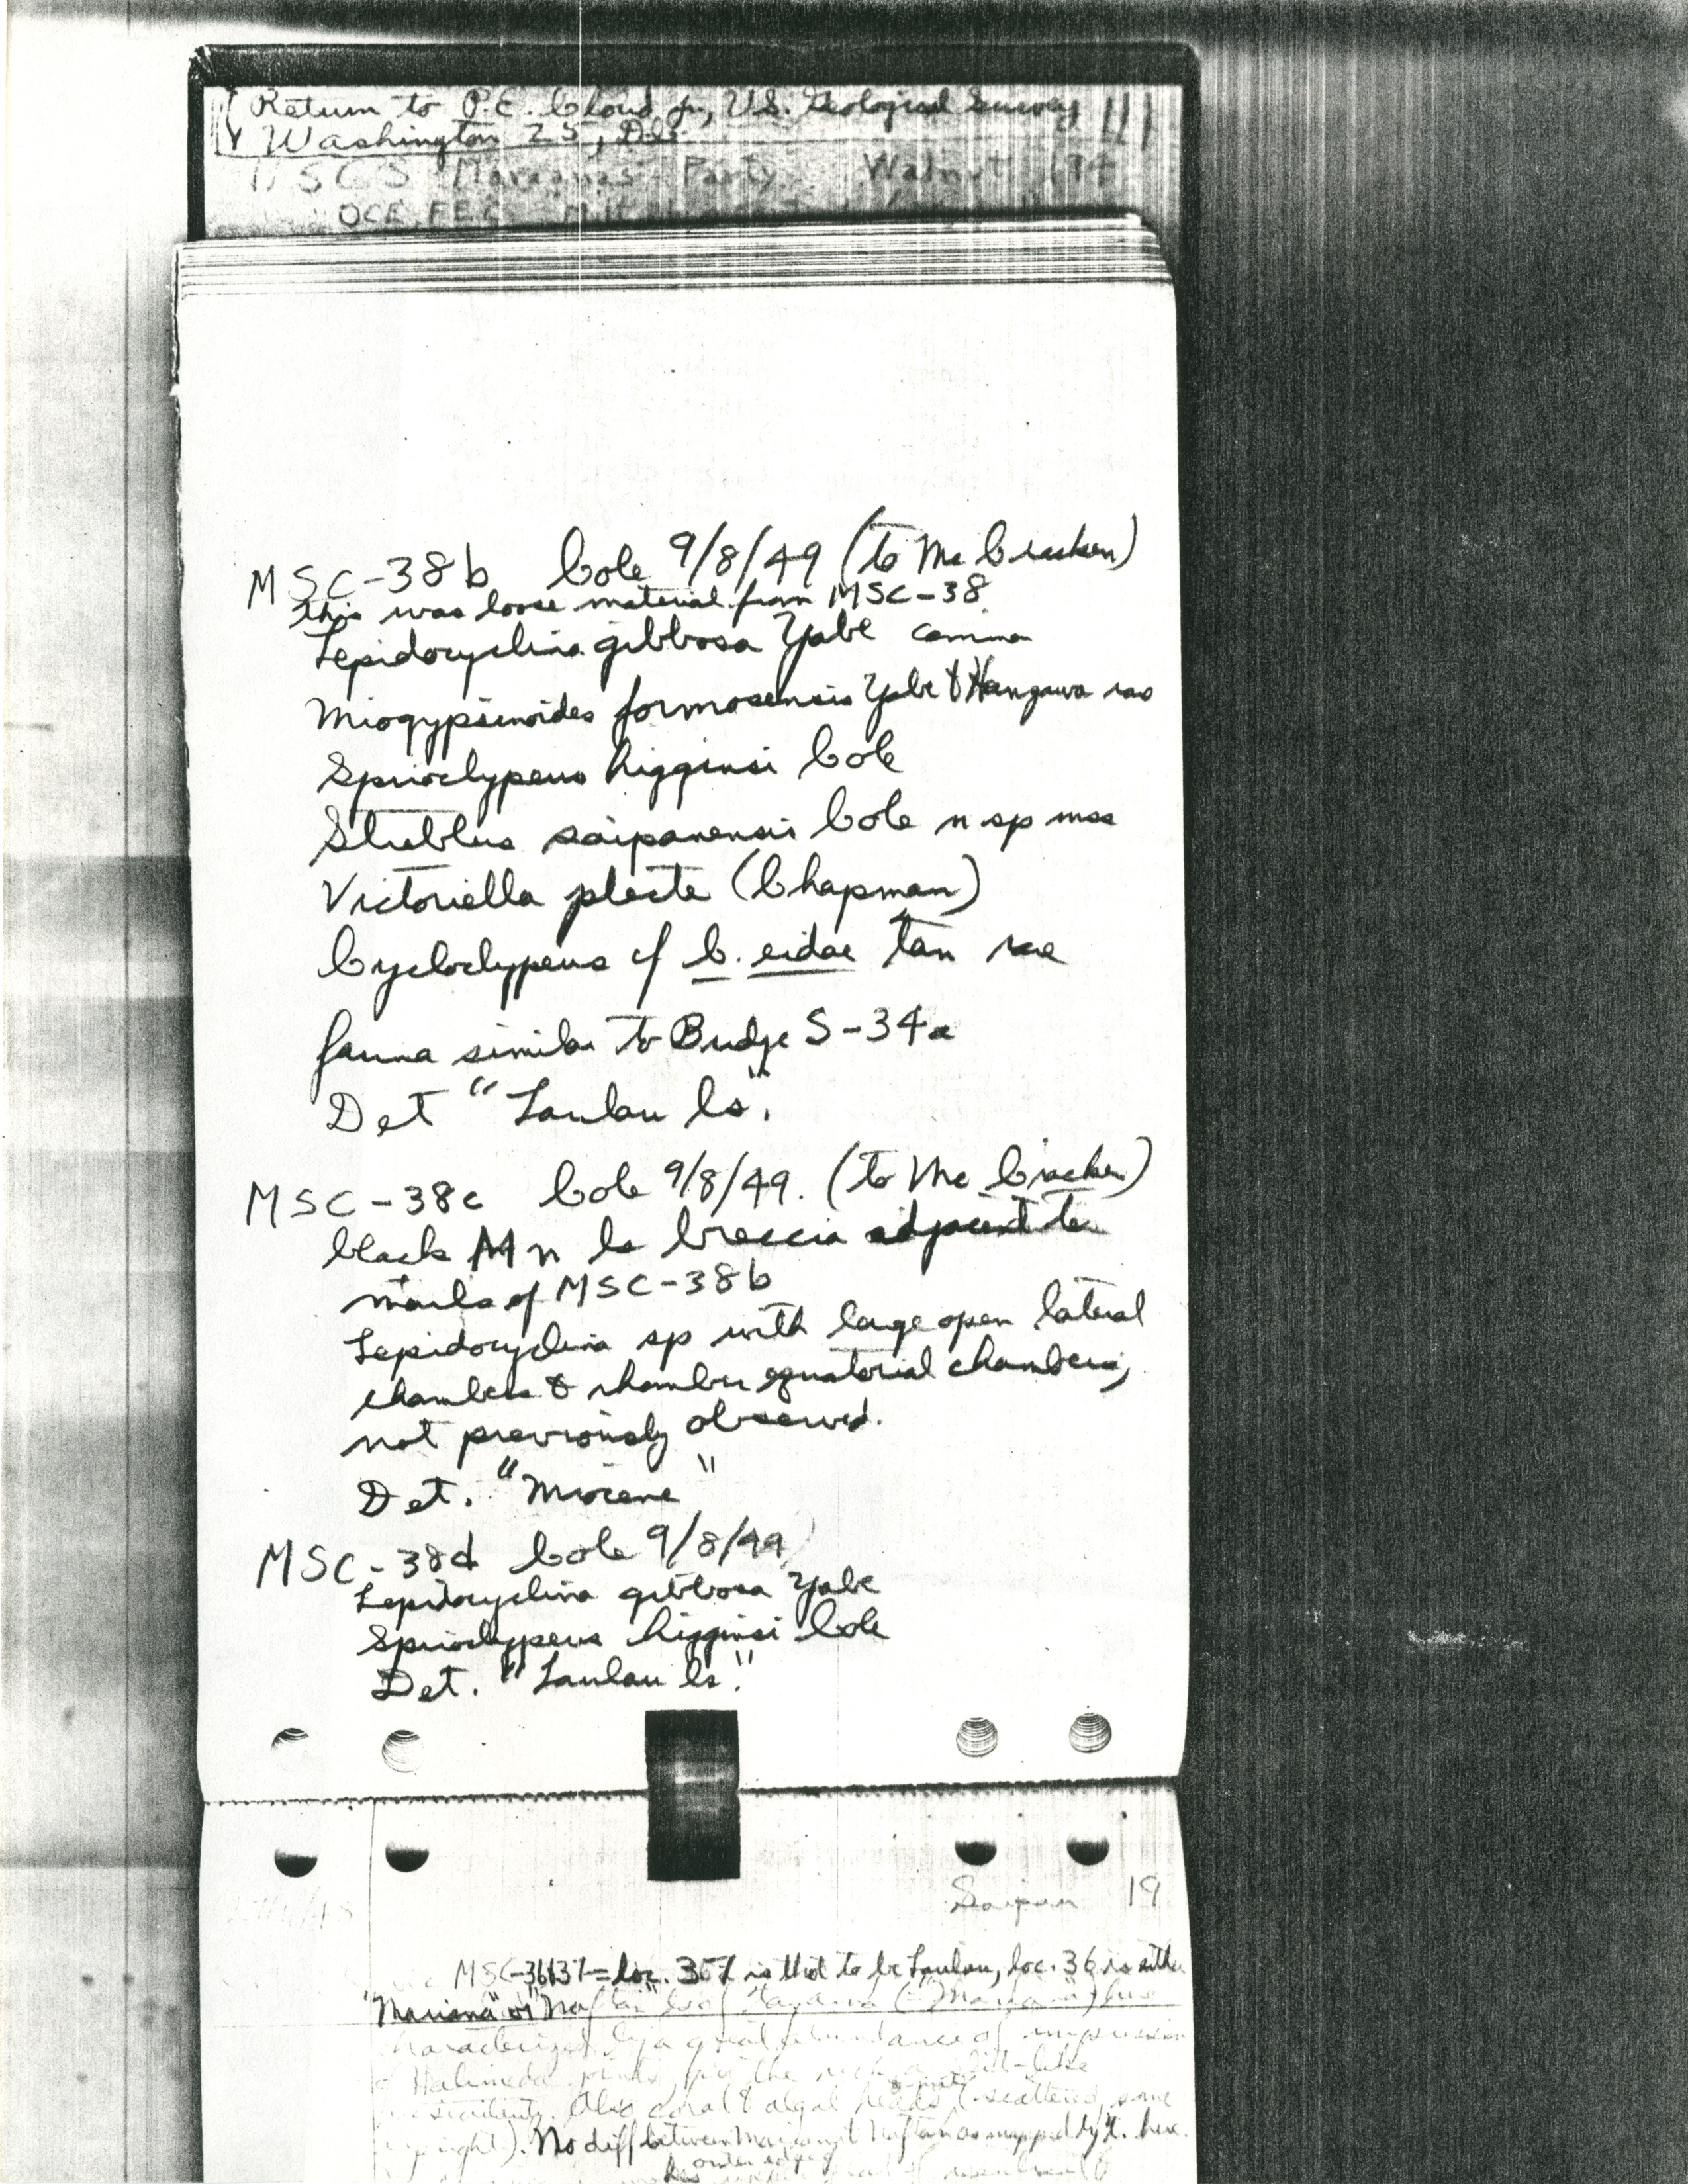 Return to P.E. Cloud Jr, U.S. Geological Survey
Washington 25, D.C.
USGS Marianas Party Walnut 194
OCE FEC
MSC-38b Cole 9/8/49 (to McCracken)
this was loose material from MSC-38
Lepidocyclina gibbosa Yabe common
Miogypsinoides formosensis Yabe & Hanzawa rare
Spiroclypeus higginsi Cole
Streblus saipanensis Cole n sp mss
Victoriella plecte (Chapman)
Cycloclypeus cf C. eidae Tan rare
fauna similar to Bridge S-34a
Det "Laulau ls".
MSC-38c Cole 9/8/49. (to McCracken)
black Mn ls breccia adjacent to
marls of MSC-38b
Lepidocyclina sp with large open lateral
chambers & rhombic equatorial chambers,
not previously observed.
Det. "Miocene"
MSC-38d Cole 9/8/49
Lepidocyclina gibbosa Yabe
Spiroclypeus higginsi Cole
Det. "Laulau ls."
Saipan 19
loc. is thot to be Laulau, loc. 36 is either
"Mariana" or "Naftan" ls of Tayama ("Mariana") here
characterized by a great abundance of impression
of Halimeda joints, give the rock a
Also coral & algal heads (scattered, some
upright). No diff between Mariana & Naftan as mapped by T. here.
outer edges